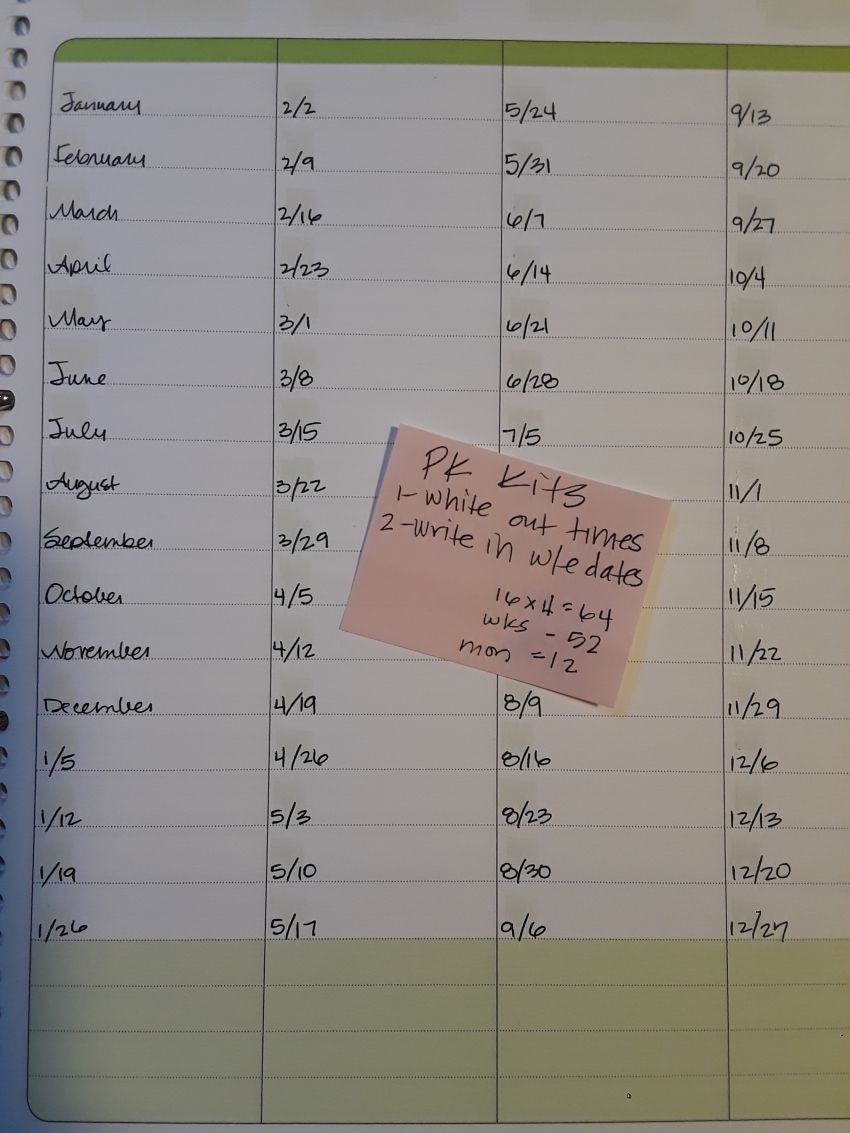 January
February
March
April
May
June
July
August
September
October
November
December
1/5
1/12
1/19
1/26
2/2
2/9
2/16
2/23
3/1
3/8
3/15
3/22
3/29
4/5
4/12
4/19
4/26
5/3
5/10
5/17
5/24
5/31
6/7
6/14
6/21
6/28
7/5
PK Kits
1-white out times
2-write in w/e dates
16x4=64
wks - 52
mon =12
8/9
8/16
8/23
8/30
9/6
9/13
9/20
9/27
10/4
10/11
10/18
10/25
11/1
11/8
11/15
11/22
11/29
12/6
12/13
12/20
12/27